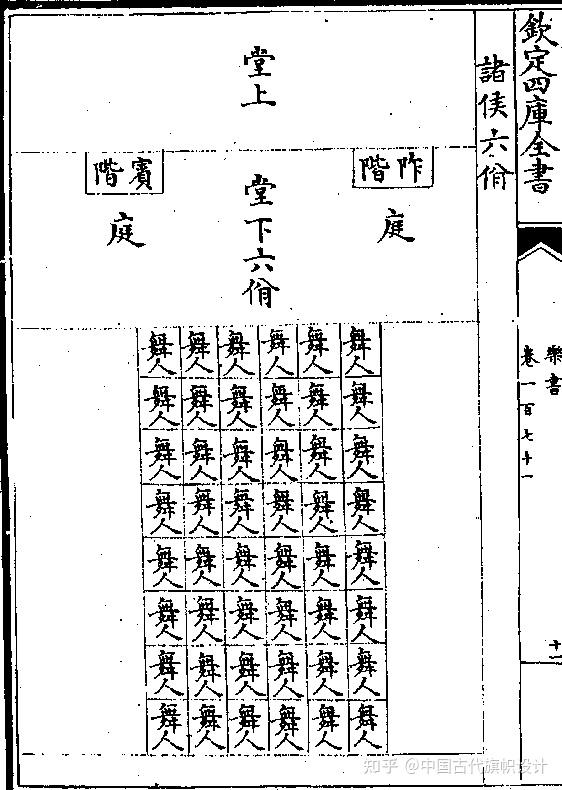 欽定四庫全書
樂書
卷一百七十一
十一
諸侯六佾
堂上
阼階
賓階
庭
堂下六佾
庭
舞人 舞人 舞人 舞人 舞人 舞人
舞人 舞人 舞人 舞人 舞人 舞人
舞人 舞人 舞人 舞人 舞人 舞人
舞人 舞人 舞人 舞人 舞人 舞人
舞人 舞人 舞人 舞人 舞人 舞人
舞人 舞人 舞人 舞人 舞人 舞人
舞人 舞人 舞人 舞人 舞人 舞人
舞人 舞人 舞人 舞人 舞人 舞人
知乎 @中国古代旗帜设计